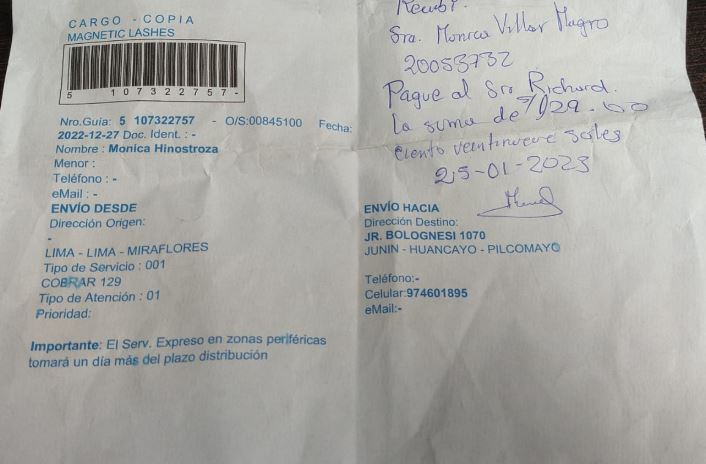 CARGO - COPIA
MAGNETIC LASHES
5 107322757-
Nro.Guía: 5 107322757 - O/S:00845100 Fecha:
2022-12-27 Doc. Ident. : -
Nombre : Monica Hinostroza
Menor :
Teléfono : -
eMail : -
ENVÍO DESDE
Dirección Origen:
-
LIMA - LIMA - MIRAFLORES
Tipo de Servicio : 001
COBRAR 129
Tipo de Atención : 01
Prioridad:
Importante: El Serv. Expreso en zonas periféricas
tomará un día más del plazo distribución
Recibí.
Sra. Monica Villar Magro
20053732
Pague al Sr. Richard.
La suma de S/129.00
Ciento veintinueve soles
25-01-2023
ENVÍO HACIA
Dirección Destino:
JR. BOLOGNESI 1070
JUNIN - HUANCAYO - PILCOMAYO
Teléfono:-
Celular:974601895
eMail:-